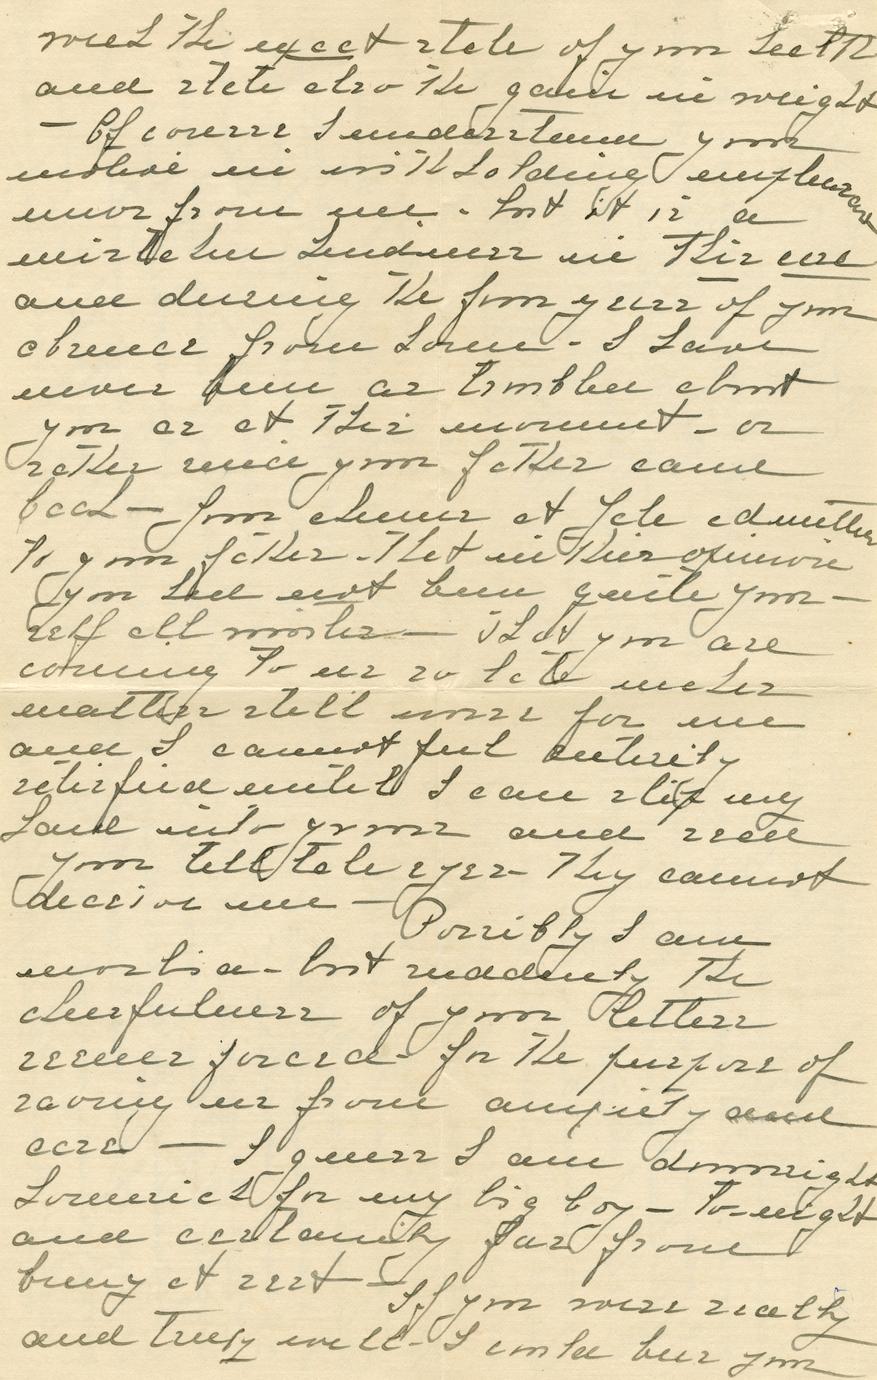 week the exact state of your health
and state also the gain in weight
— Of course I understand your
motive in withholding unpleasant
news from me - but it is a
mistaken kindness in this case
and during the four years of your
absence from home - I have
never been as troubled about
you as at this moment - or
rather since your father came
back — your chums at Yale admitted
to your father - that in their opinion
you had not been quite your-
self all winter — That you are
coming to us so late makes
matters still worse for me
and I cannot feel entirely
satisfied until I can slip my
hand into yours and read
your tell tale eyes - They cannot
deceive me —
Possibly I am
morbid - but suddenly the
cheerfulness of your letters
seemes forced - for the purpose of
saving us from anxiety and
care — I guess I am downright
homesick for my big boy - to-night
and certainly far from
being at rest —
If you were really
and truly well - I could bear your